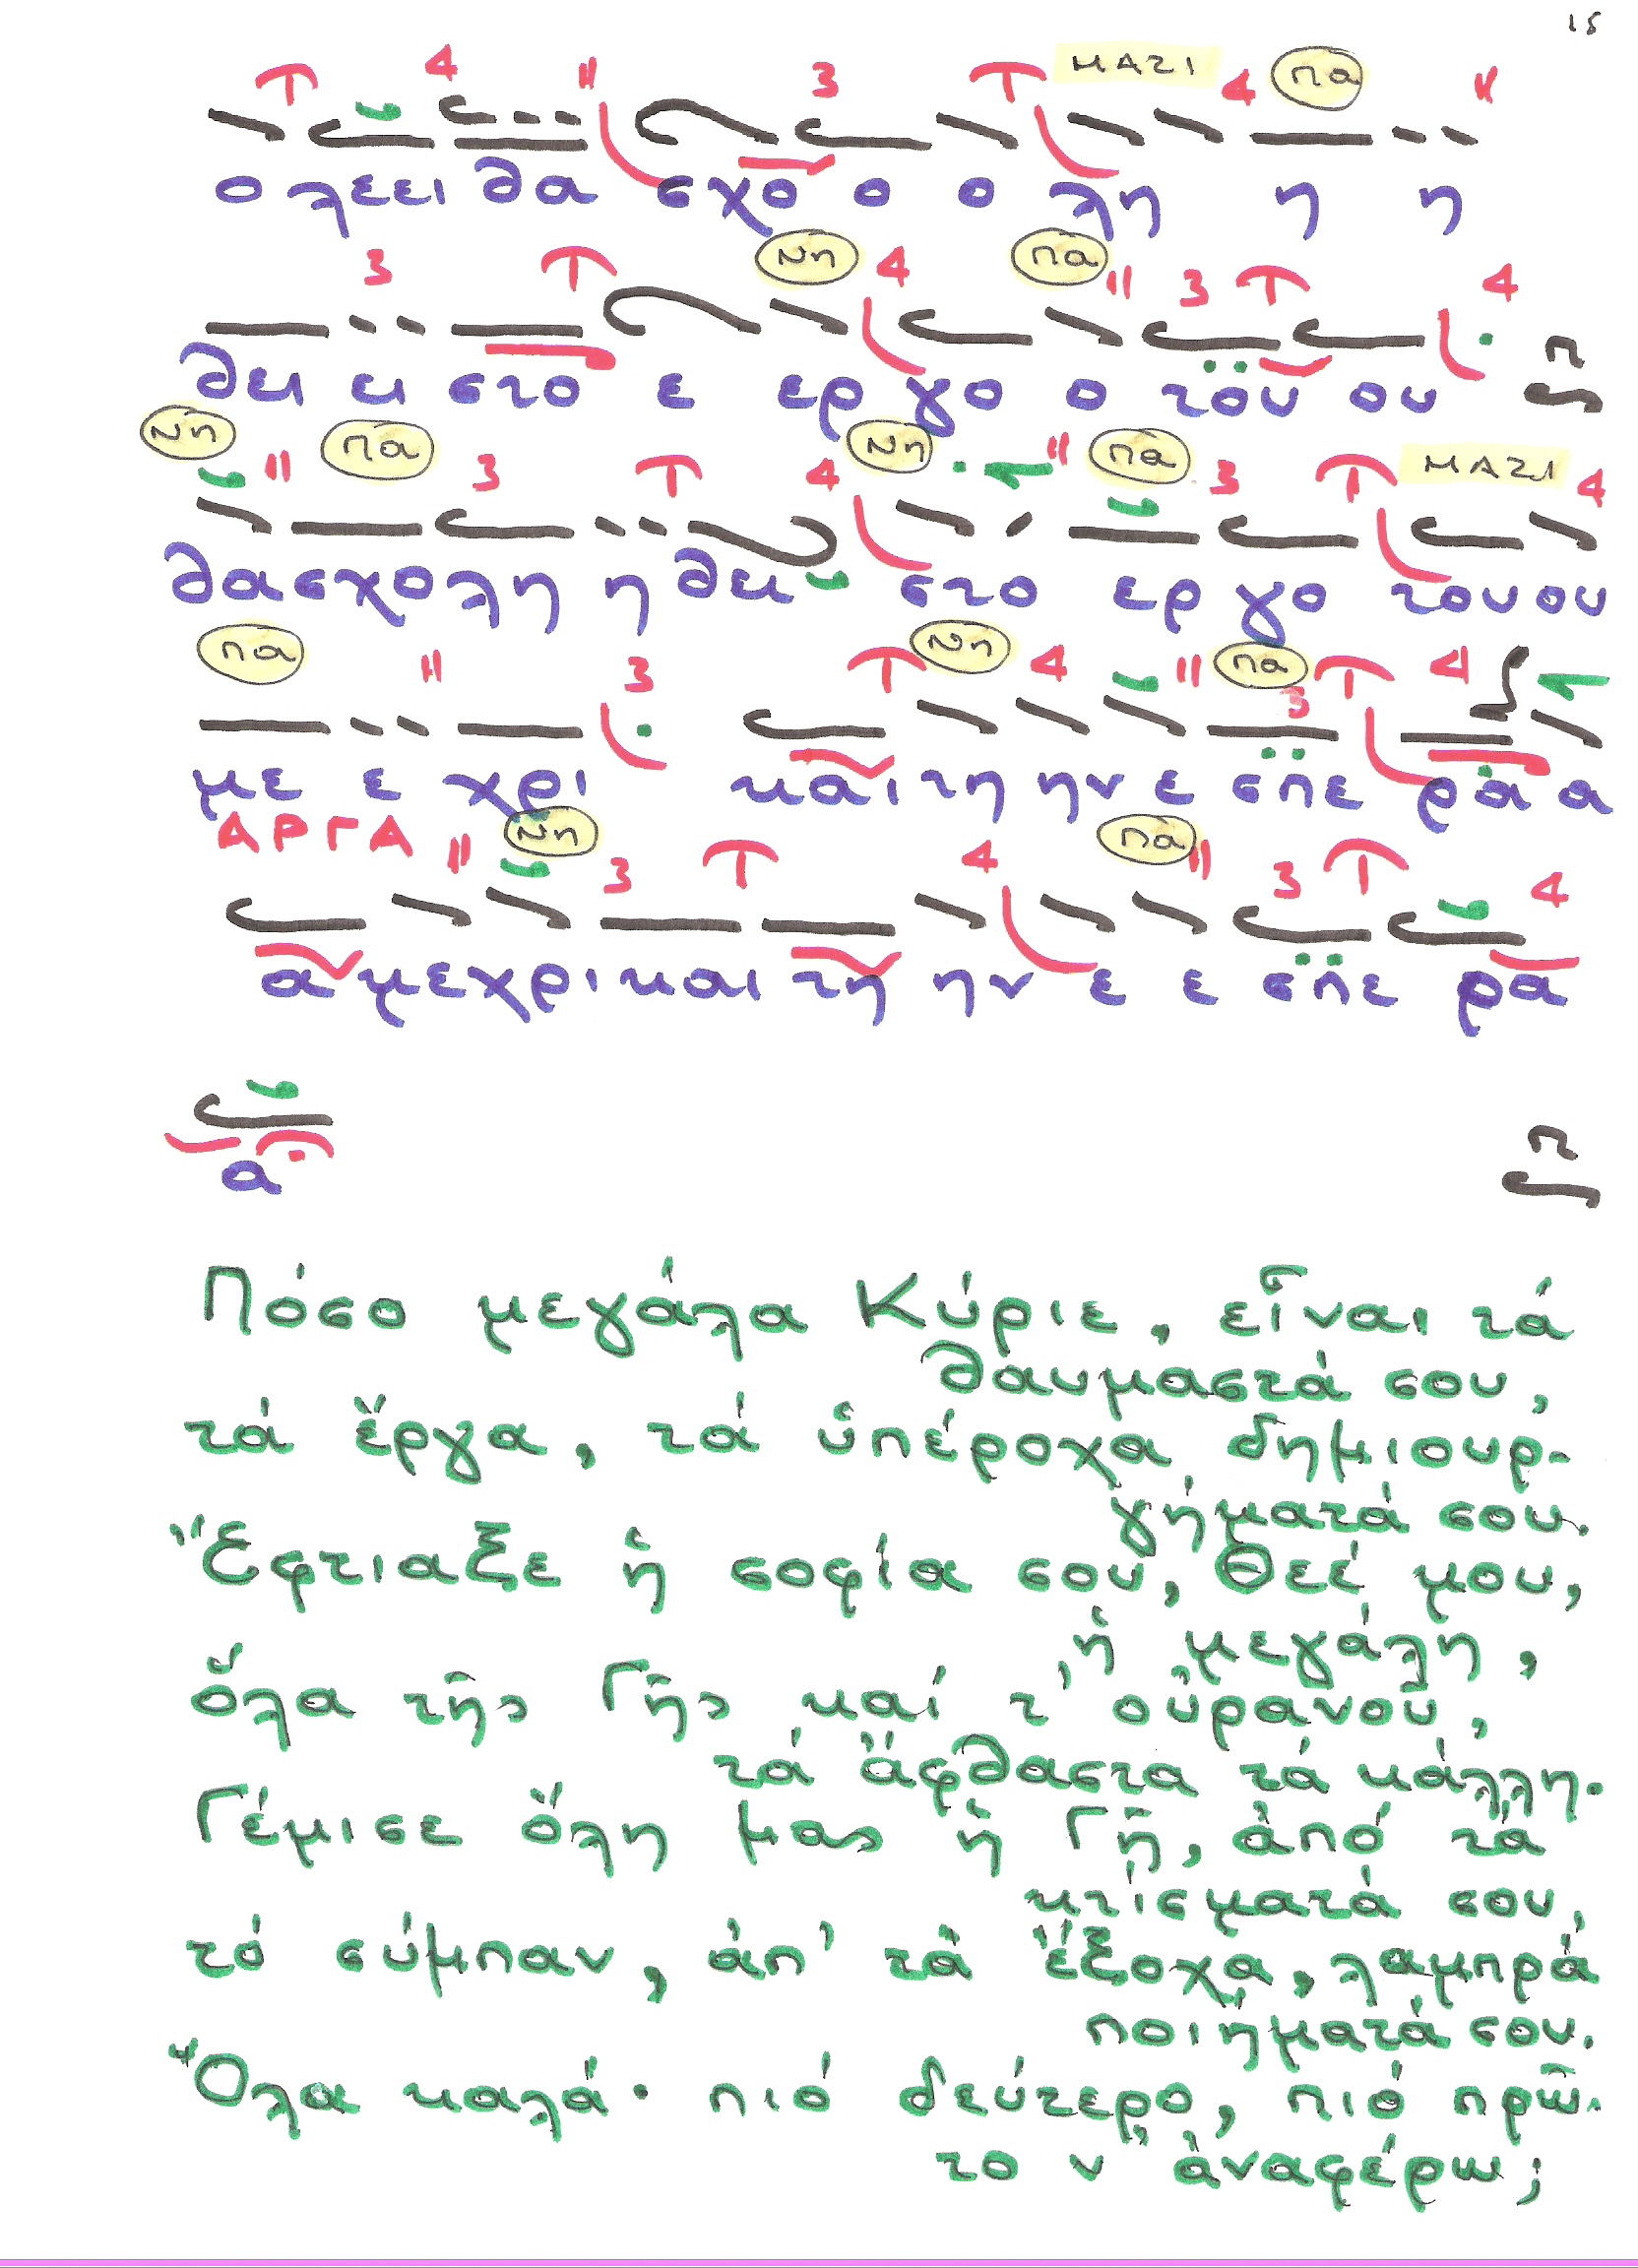 15
Τ 4 " 3 Τ ΜΑΖΙ 4 πα "
ο λεει θα σχο ο ο λη η η
3 Τ Νη 4 πα " 3 Τ 4
θει ει στο ε ερ γο ο του ου
Νη " πα 3 Τ 4 Νη " πα 3 Τ ΜΑΖΙ 4
θασχολη η θει στο ερ γο τουου
πα " 3 Τ Νη 4 " πα 3 Τ 4
με ε χρι και τη ην ε σπε ρα α
ΑΡΓΑ " Νη 3 Τ 4 πα " 3 Τ 4
α μεχρι και τη ην ε ε σπε ρα
α
Πόσο μεγάλα Κύριε, εἶναι τά
θαυμαστά σου,
τά ἔργα, τά ὑπέροχα δημιουρ-
γήματά σου.
Ἔφτιαξε ἡ σοφία σου, Θεέ μου,
ἡ μεγάλη,
ὅλα τῆς Γῆς καί τ' οὐρανοῦ,
τά ἄφθαστα τά κάλλη.
Γέμισε ὅλη μας ἡ Γῆ, ἀπό τά
κτίσματά σου,
τό σύμπαν, ἀπ' τά ἔξοχα, λαμπρά
ποιήματά σου.
Ὅλα καλά· πιό δεύτερο, πιό πρῶ-
το ν' ἀναφέρω;